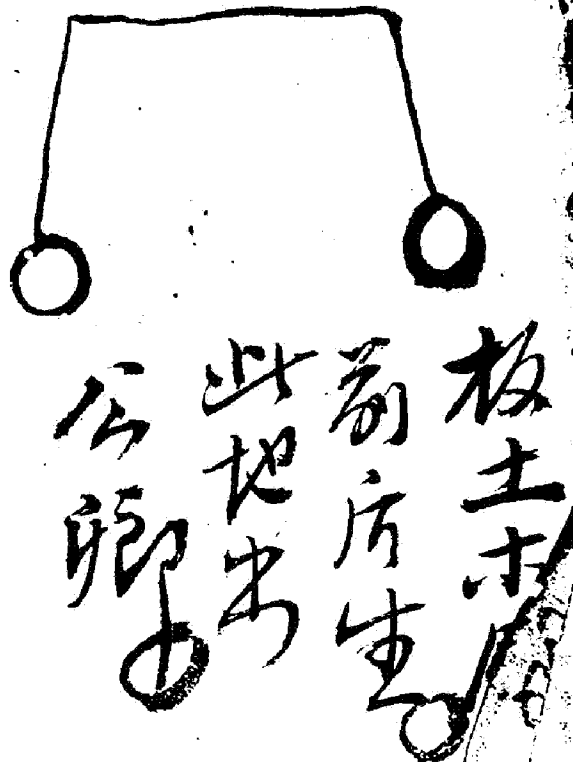 板土木
前后生
此地出
公卿